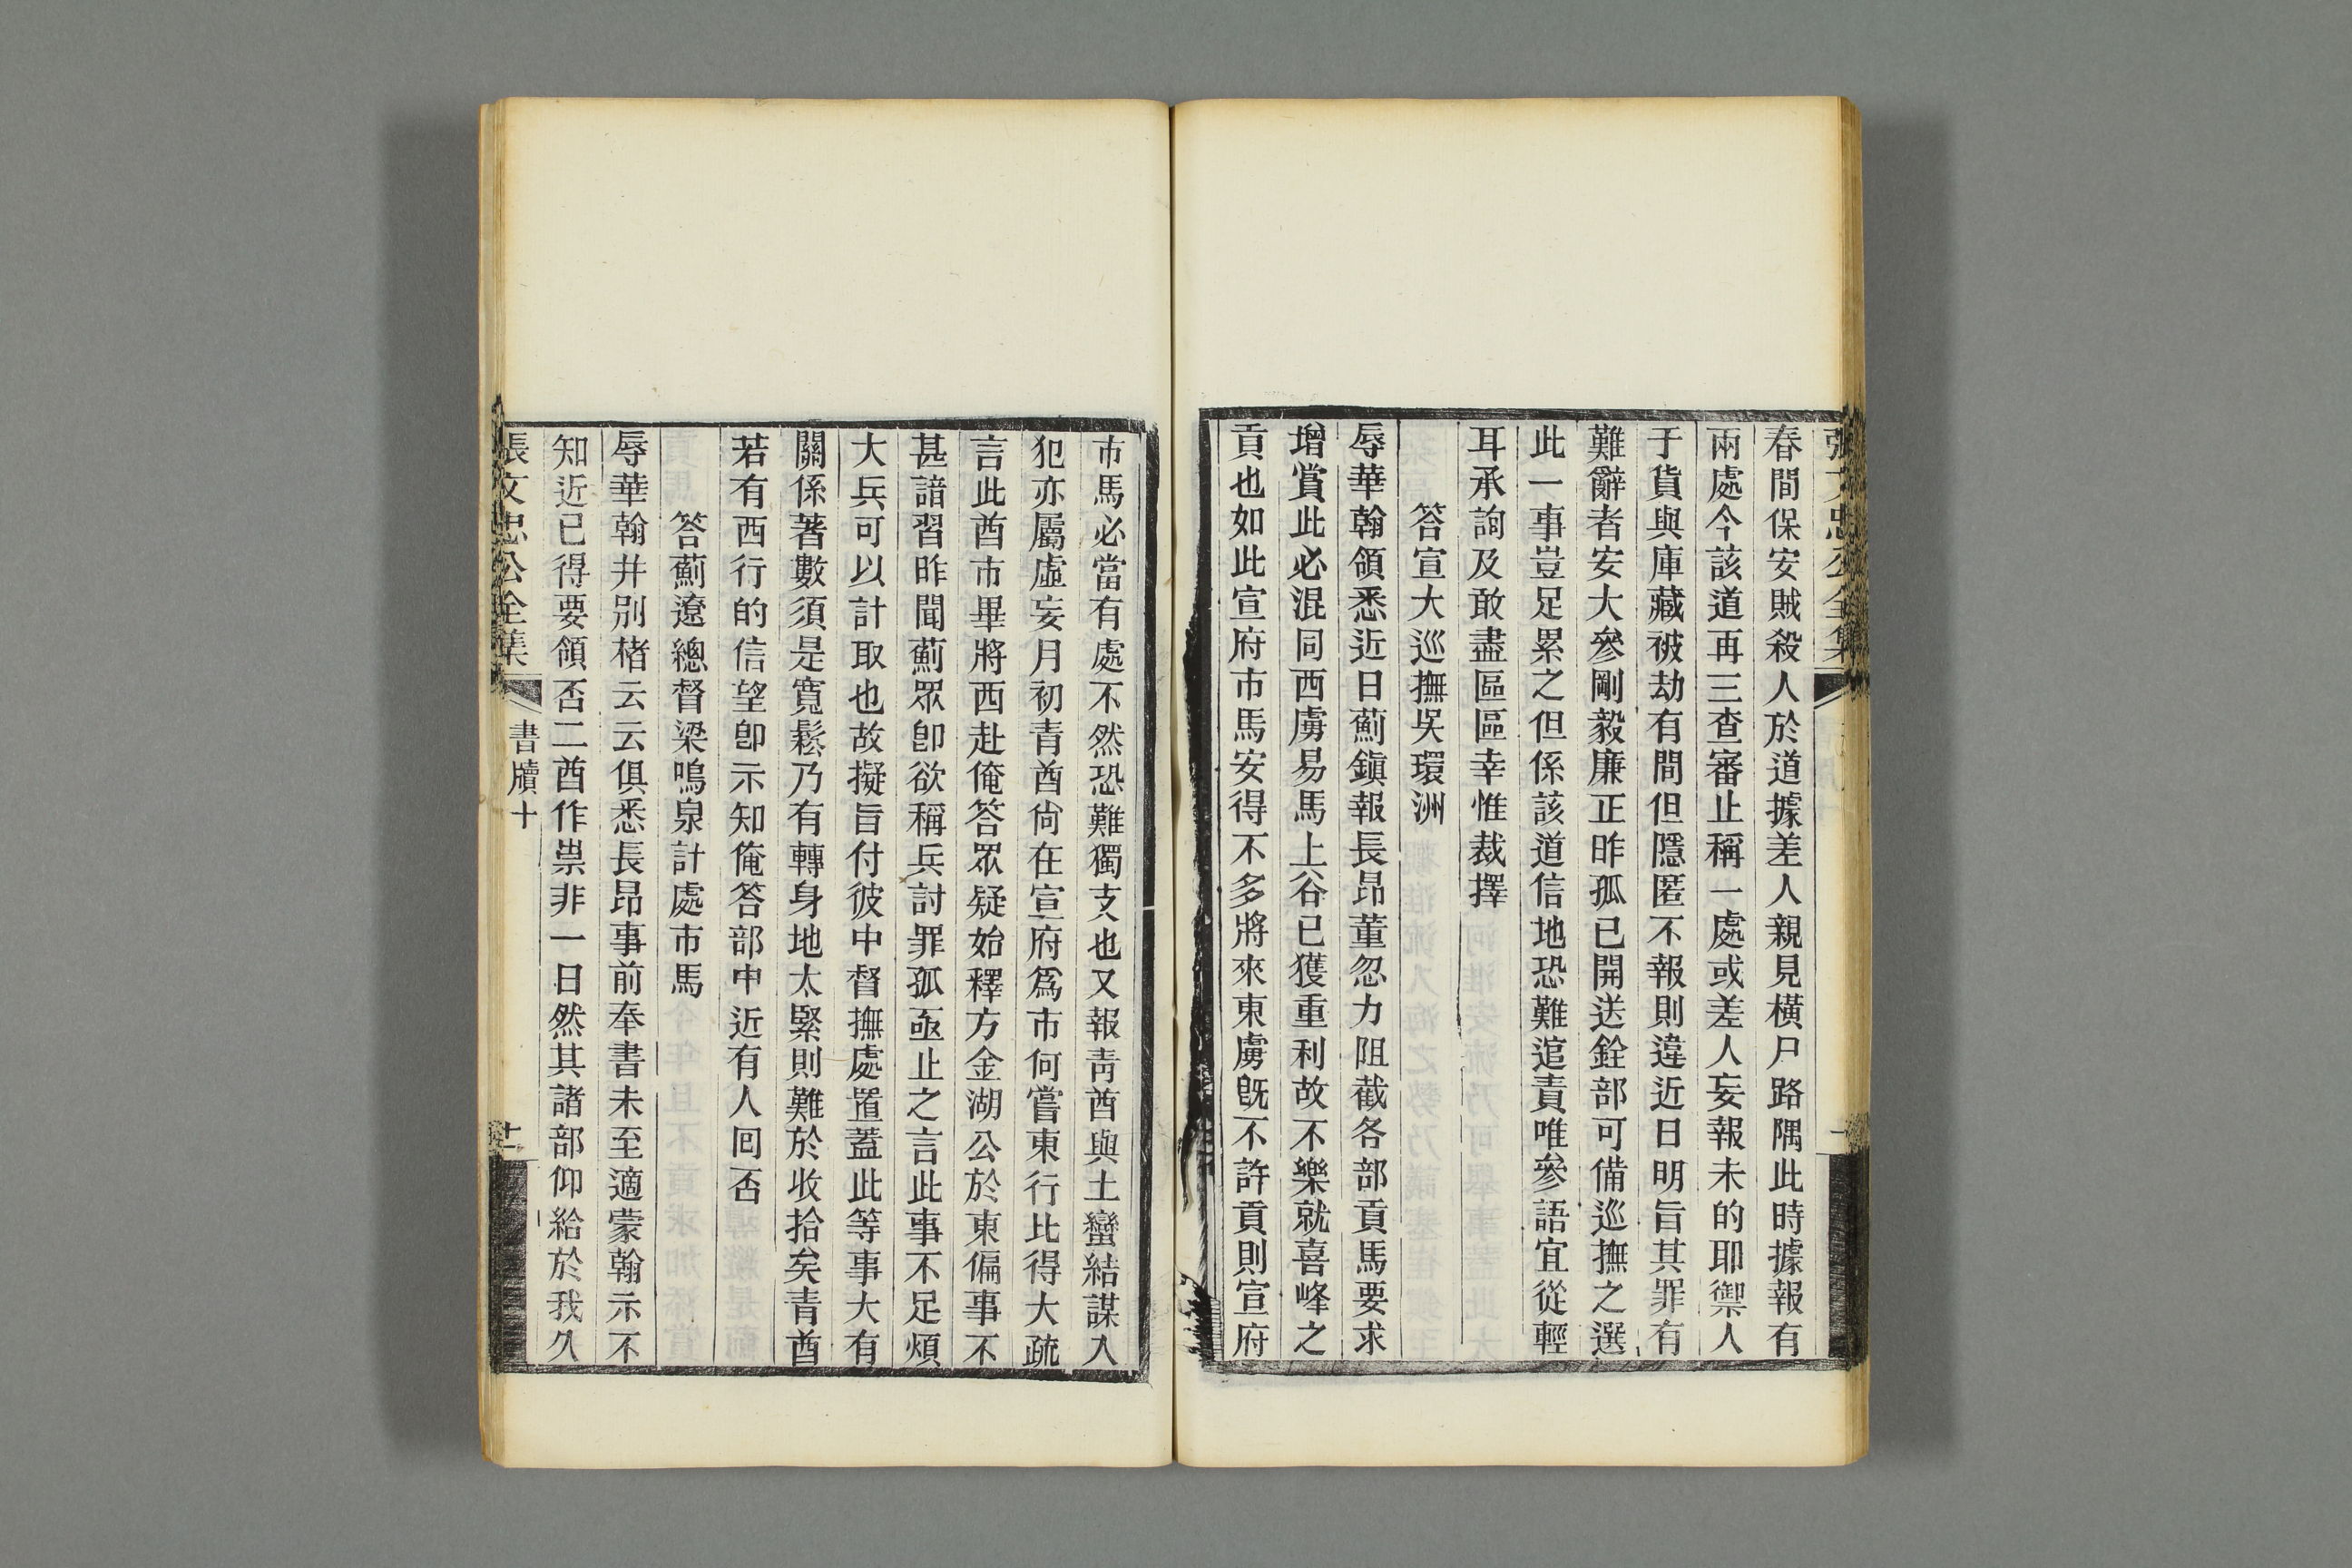 張文忠公全集
春間保安賊殺人於道據差人親見橫尸路隅此時據報有
兩處今該道再三查審止稱一處或差人妄報未的耶禦人
于貨與庫藏被劫有間但隱匿不報則違近日明旨其罪有
難辭者安大參剛毅廉正昨孤已開送銓部可備巡撫之選
此一事豈足累之但係該道信地恐難逭責唯參語宜從輕
耳承詢及敢盡區區幸惟裁擇
答宣大巡撫吳環洲
辱華翰領悉近日薊鎭報長昂董忽力阻截各部貢馬要求
增賞此必混同西虜易馬上谷已獲重利故不樂就喜峰之
貢也如此宣府市馬安得不多將來東虜旣不許貢則宣府
市馬必當有處不然恐難獨支也又報靑酋與土蠻結謀入
犯亦屬虛妄月初青酋尙在宣府爲市何嘗東行比得大疏
言此酋市畢將西赴俺答眾疑始釋方金湖公於東偏事不
甚諳習昨聞薊眾卽欲稱兵討罪孤亟止之言此事不足煩
大兵可以計取也故擬旨付彼中督撫處置蓋此等事大有
關係著數須是寬鬆乃有轉身地太緊則難於收拾矣青酋
若有西行的信望卽示知俺答部中近有人囘否
答薊遼總督梁鳴泉計處市馬
辱華翰并別楮云云俱悉長昂事前奉書未至適蒙翰示不
知近已得要領否二酋作祟非一日然其諸部仰給於我久
張文忠公全集
書牘十
十二